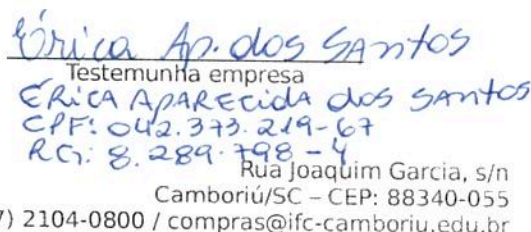 Érica Ap. dos Santos
Testemunha empresa
ERICA APARECIDA dos SANTOS
CPF: 042.373.219-67
RG: 8.289.798-4
Rua Joaquim Garcia, s/n
Camboriú/SC – CEP: 88340-055
7) 2104-0800 / compras@ifc-camboriu.edu.br